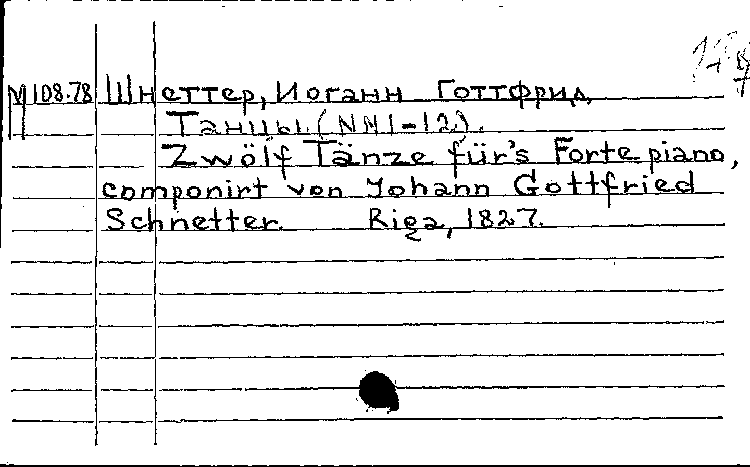 М108.78 Шнеттер, Иоганн Готтфрид
Танцы (NN1-12).
Zwölf Tänze für's Fortepiano,
componirt von Johann Gottfried
Schnetter. Riga, 1827.